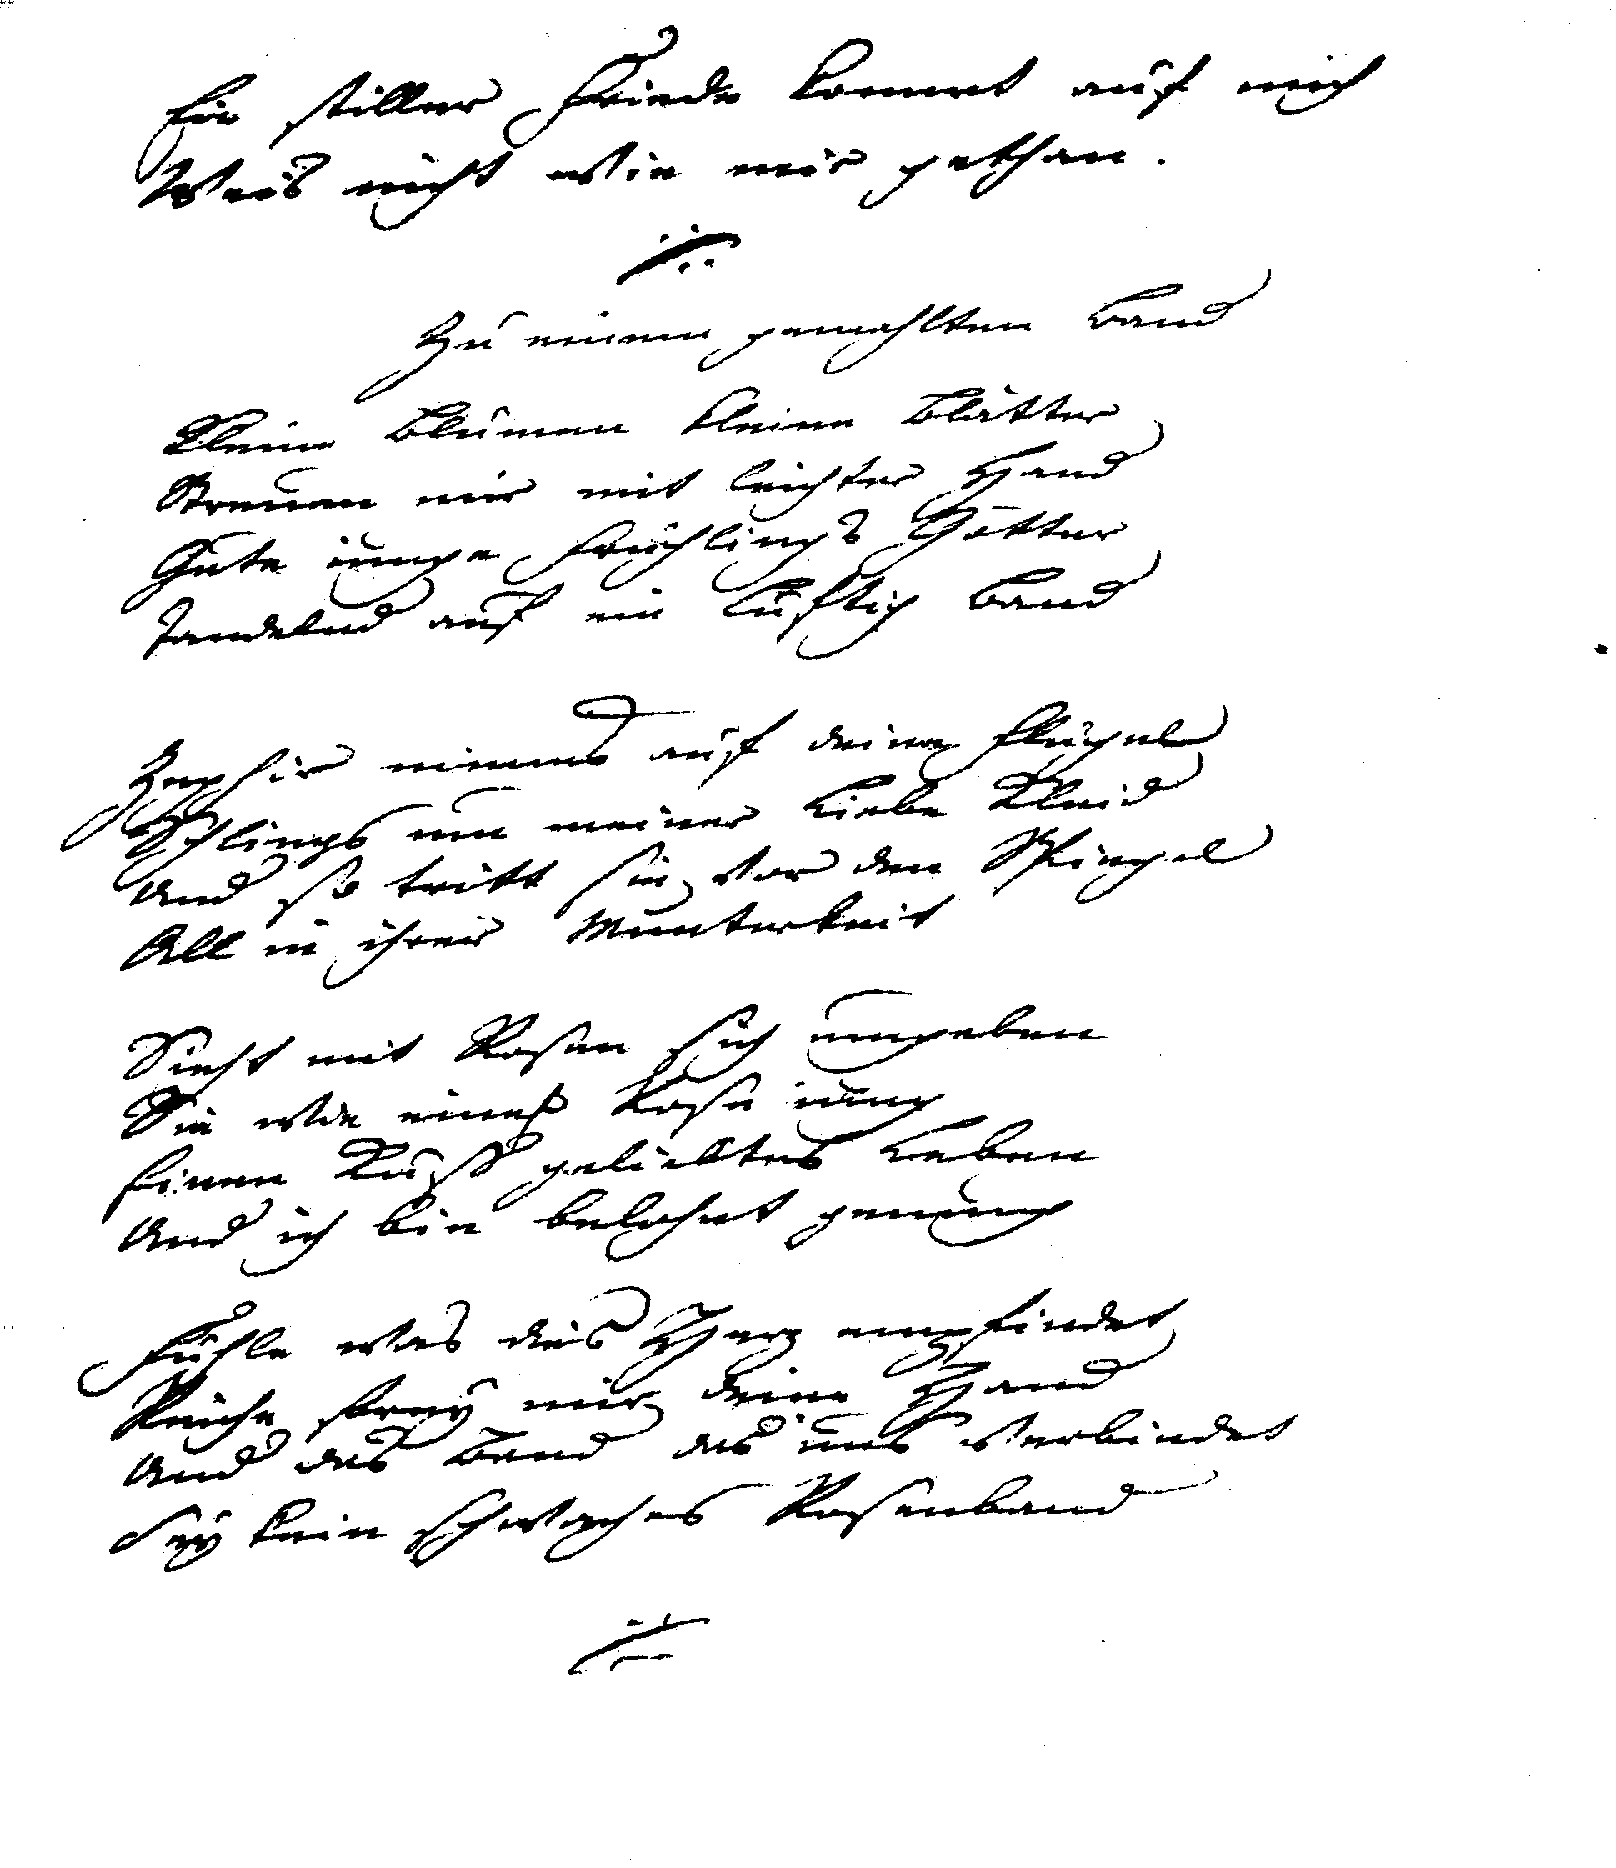 Ein stiller Friede kommt auf mich
Weis nicht wie mir gethan.
Zu einem gemahlten Band
Kleine Blumen kleine Blätter
Streuen mir mit leichter Hand
Gute iunge Frühlings Götter
Tandelnd auf ein lufftig Band
Zephir nimms auf deine Flügel
Schlings um meiner Liebe Kleid
Und so tritt sie vor den Spiegel
All in ihrer Munterkeit
Sieht mit Rosen sich umgeben
Sie wie eine Rose iung
Einen Kuss geliebtes Leben
Und ich bin belohnt genung
Fühle was dies Herz empfindet
Reiche frey mir deine Hand
Und das Band das uns verbindet
Sey kein schwaches Rosenband